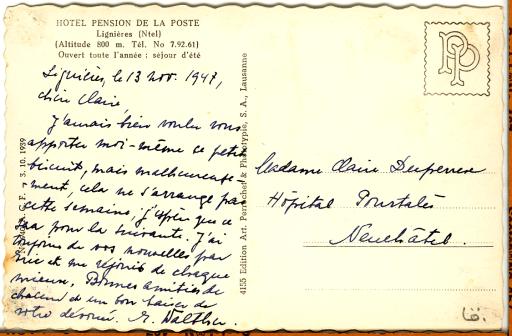 HOTEL PENSION DE LA POSTE
Lignières (Ntel)
(Altitude 800 m. Tél. No 7.92.61)
Ouvert toute l'année : séjour d'été
Lignières, le 13 nov. 1947,
chère Claire,
J'aurais bien voulu vous
apporter moi-même ce petit
biscuit, mais malheureuse-
ment, cela ne s'arrange pas
cette semaine, j'espère que ce
sera pour la suivante. J'ai
toujours de vos nouvelles par
et me réjouis de chaque
mieux. Bonnes amitiés de
chacun et un bon baiser de
votre dévouée. M. Walther.
3. 10. 1939
4155 Edition Art. Perrochet & Phototypie, S. A., Lausanne
PP
Madame Claire Duperrex
Hôpital Pourtalès
Neuchâtel.